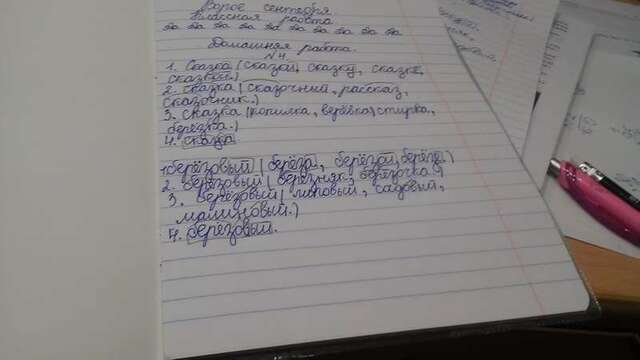 Второе сентября.
Классная работа.
Домашняя работа.
№4.
1. Сказка (сказой, сказку, сказке,
сказкой.)
2. сказка (сказочный, рассказ,
сказочник.)
3. сказка (копилка, верёвка, стирка,
берёзка.)
4. сказка
1. берёзовый (берёза, берёзой, берёзе.)
2. берёзовый (березняк, берёзочка.)
3. берёзовый (липовый, садовый,
малиновый.)
4. берёзовый.